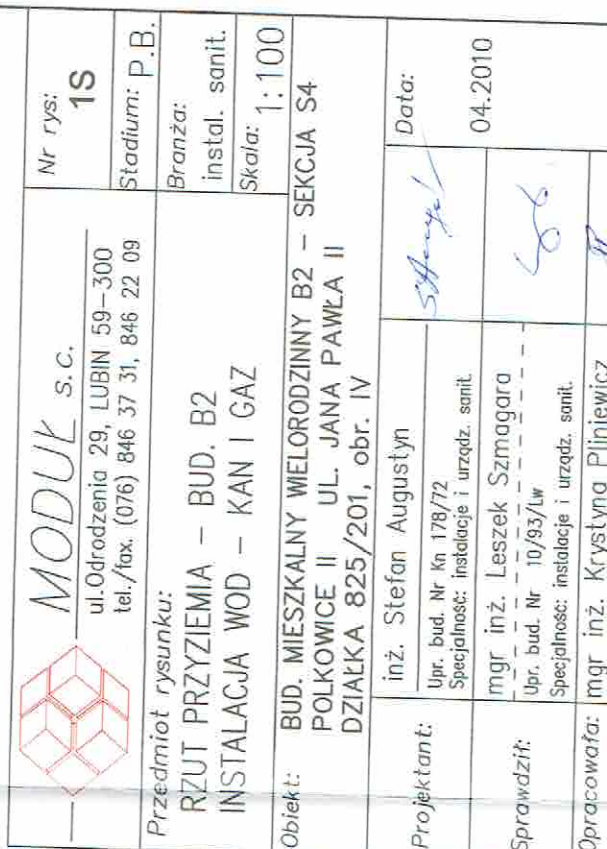 MODUŁ s.c.
ul.Odrodzenia 29, LUBIN 59-300
tel./fax. (076) 846 37 31, 846 22 09
Nr rys:
1S
Przedmiot rysunku:
RZUT PRZYZIEMIA - BUD. B2
INSTALACJA WOD - KAN I GAZ
Stadium: P.B.
Branża:
instal. sanit.
Skala: 1:100
Obiekt: BUD. MIESZKALNY WIELORODZINNY B2 - SEKCJA S4
POLKOWICE II UL. JANA PAWŁA II
DZIAŁKA 825/201, obr. IV
Projektant: inż. Stefan Augustyn
Upr. bud. Nr Kn 178/72
Specjalność: instalacje i urządz. sanit.
Data:
04.2010
Sprawdził: mgr inż. Leszek Szmagara
Upr. bud. Nr 10/93/Lw
Specjalność: instalacje i urządz. sanit.
Opracowała: mgr inż. Krystyna Pliniewicz